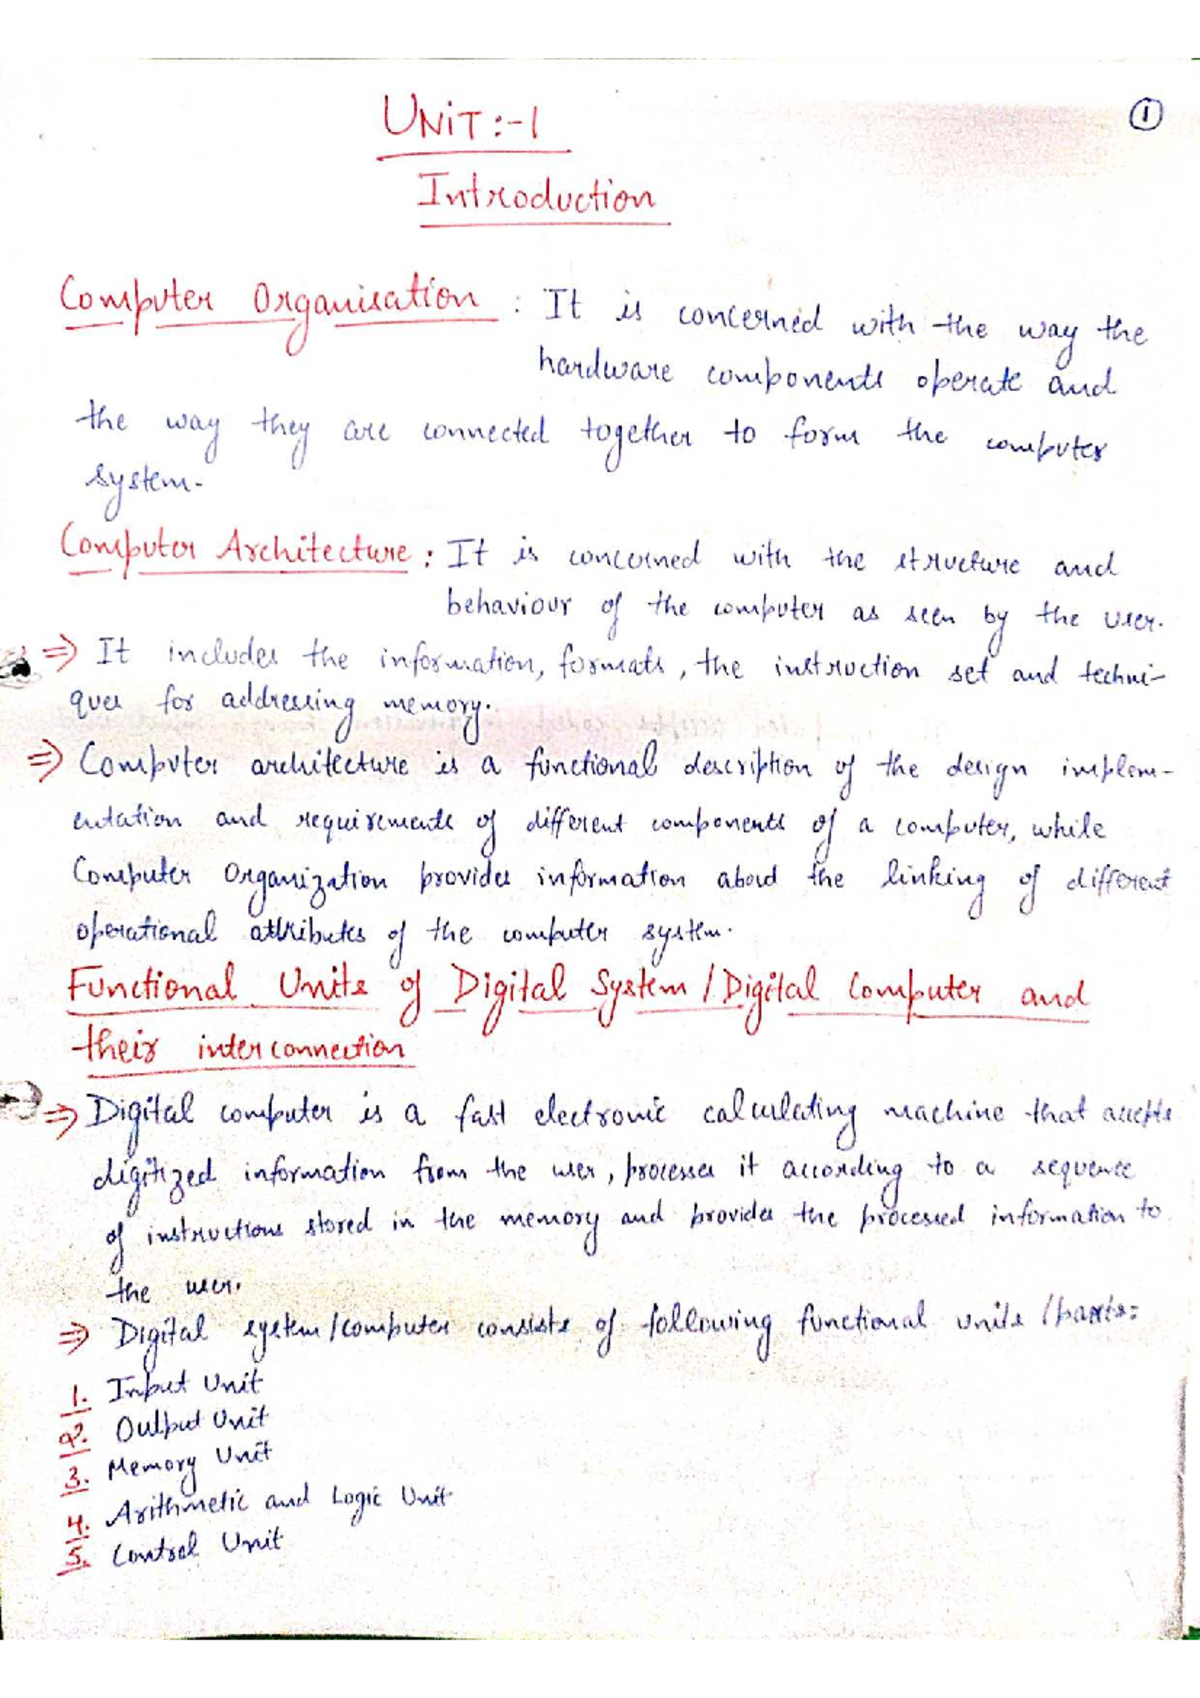 ①
UNiT:-1
Introduction
Computer Organisation : It is concerned with the way the
hardware components operate and
the way they are connected together to form the computer
system.
Computer Architecture : It is concerned with the structure and
behaviour of the computer as seen by the user.
⇒ It includes the information, formats, the instruction set and techni-
ques for addressing memory.
⇒ Computer architecture is a functional description of the design implem-
entation and requirements of different components of a computer, while
Computer Organization provides information about the linking of different
operational attributes of the computer system.
Functional Units of Digital System / Digital Computer and
their interconnection
⇒ Digital computer is a fast electronic calculating machine that accepts
digitized information from the user, processes it according to a sequence
of instructions stored in the memory and provides the processed information to
the user.
⇒ Digital system / computer consists of following functional units / parts:
1. Input Unit
2. Output Unit
3. Memory Unit
4. Arithmetic and Logic Unit
5. Control Unit